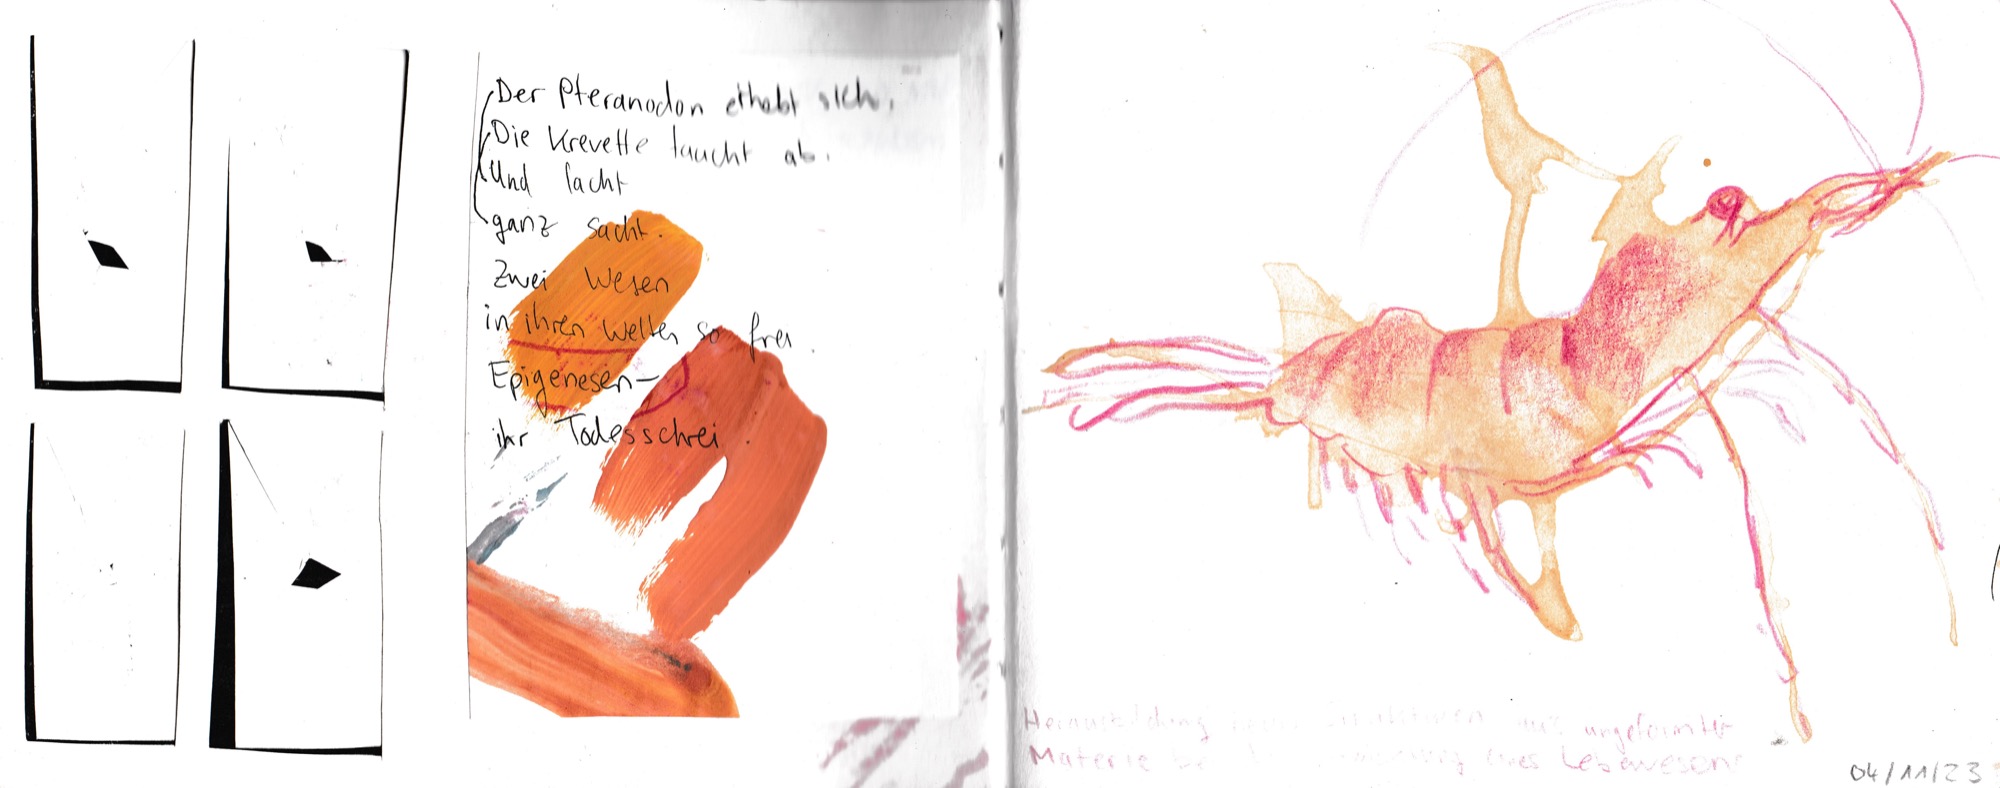 Der Pteranodon erhebt sich.
Die Krevette taucht ab.
Und lacht
ganz sacht.
Zwei Wesen
in ihren Welten so frei.
Epigenesen—
ihr Todesschrei.
Herausbildung aus ungeformter
Materie eines Lebewesens
04/11/23